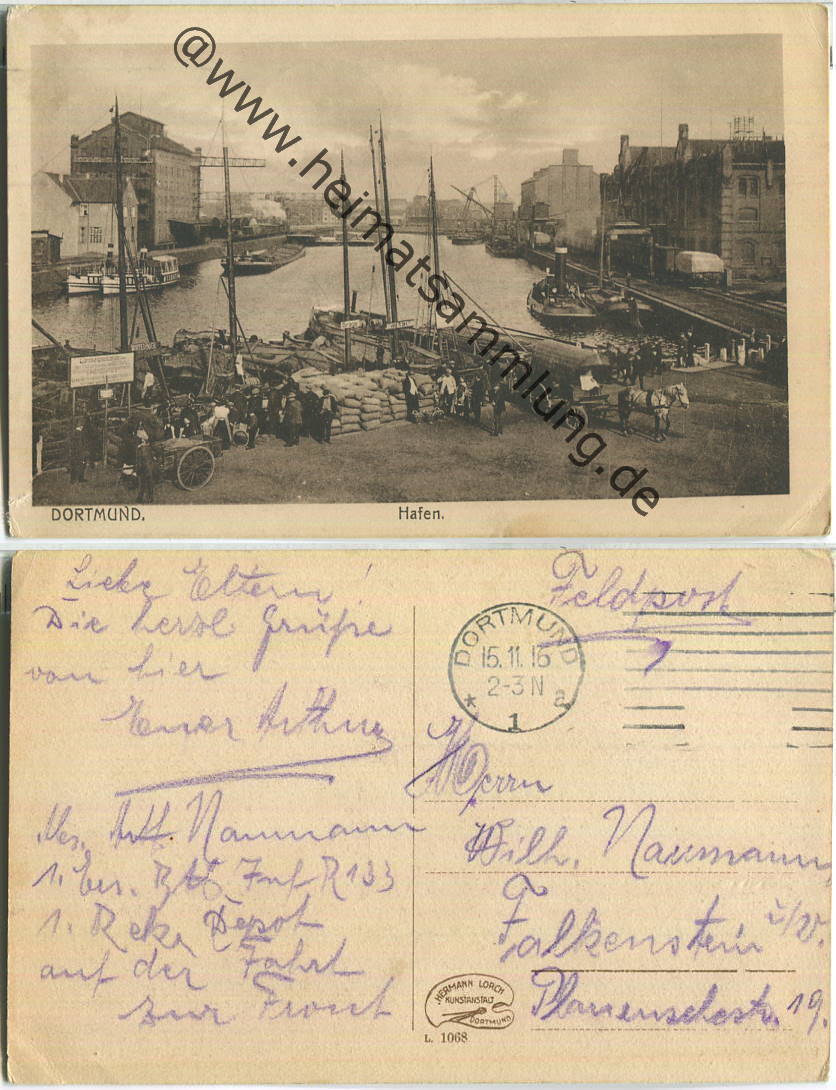 @www.heimatsammlung.de
DORTMUND.
Hafen.
Liebe Eltern!
Die herzl Grüße
von hier
Euer Arthur
Res. Arth. Naumann
1. Ers. Btl Inf R 133
1. Rekr Depot
auf der Fahrt
zur Front
Feldpost
DORTMUND
15.11.15
2-3 N
* 1 a
Herrn
Wilh. Naumann
Falkenstein i/V.
Plauenschestr. 19.
HERMANN LORCH
KUNSTANSTALT
DORTMUND
L. 1068